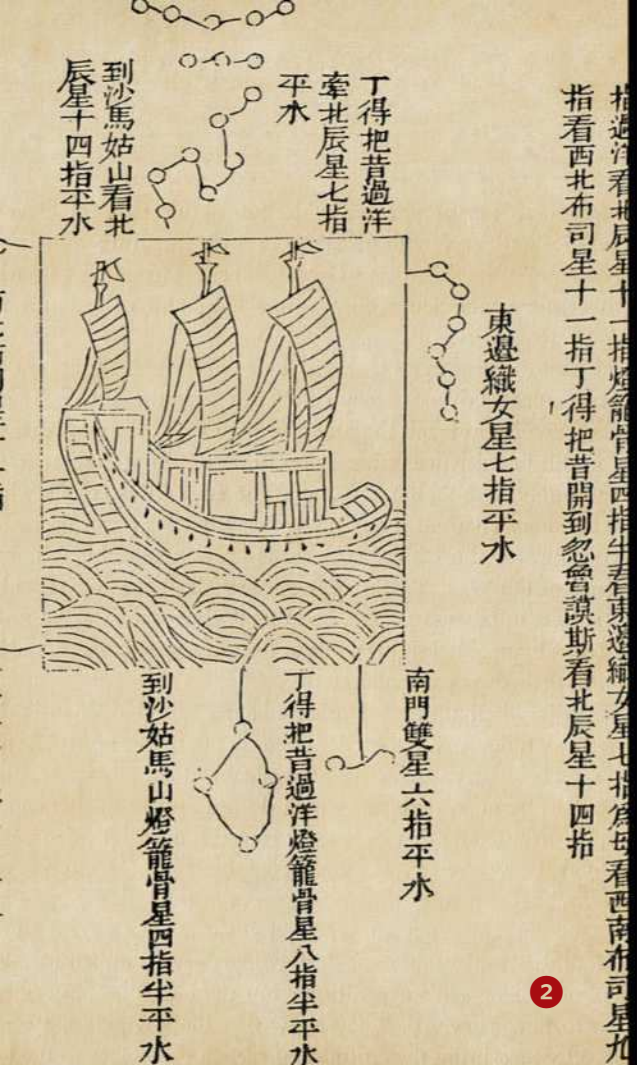 指過洋看北辰星十一指燈籠骨星四指半看東邊織女星七指為母看西南布司星九
指看西北布司星十一指丁得把昔開到忽魯謨斯看北辰星十四指
東邊織女星七指平水
丁得把昔過洋
牽北辰星七指
平水
到沙馬姑山看北
辰星十四指平水
南門雙星六指平水
丁得把昔過洋燈籠骨星八指半平水
到沙姑馬山燈籠骨星四指半平水
2